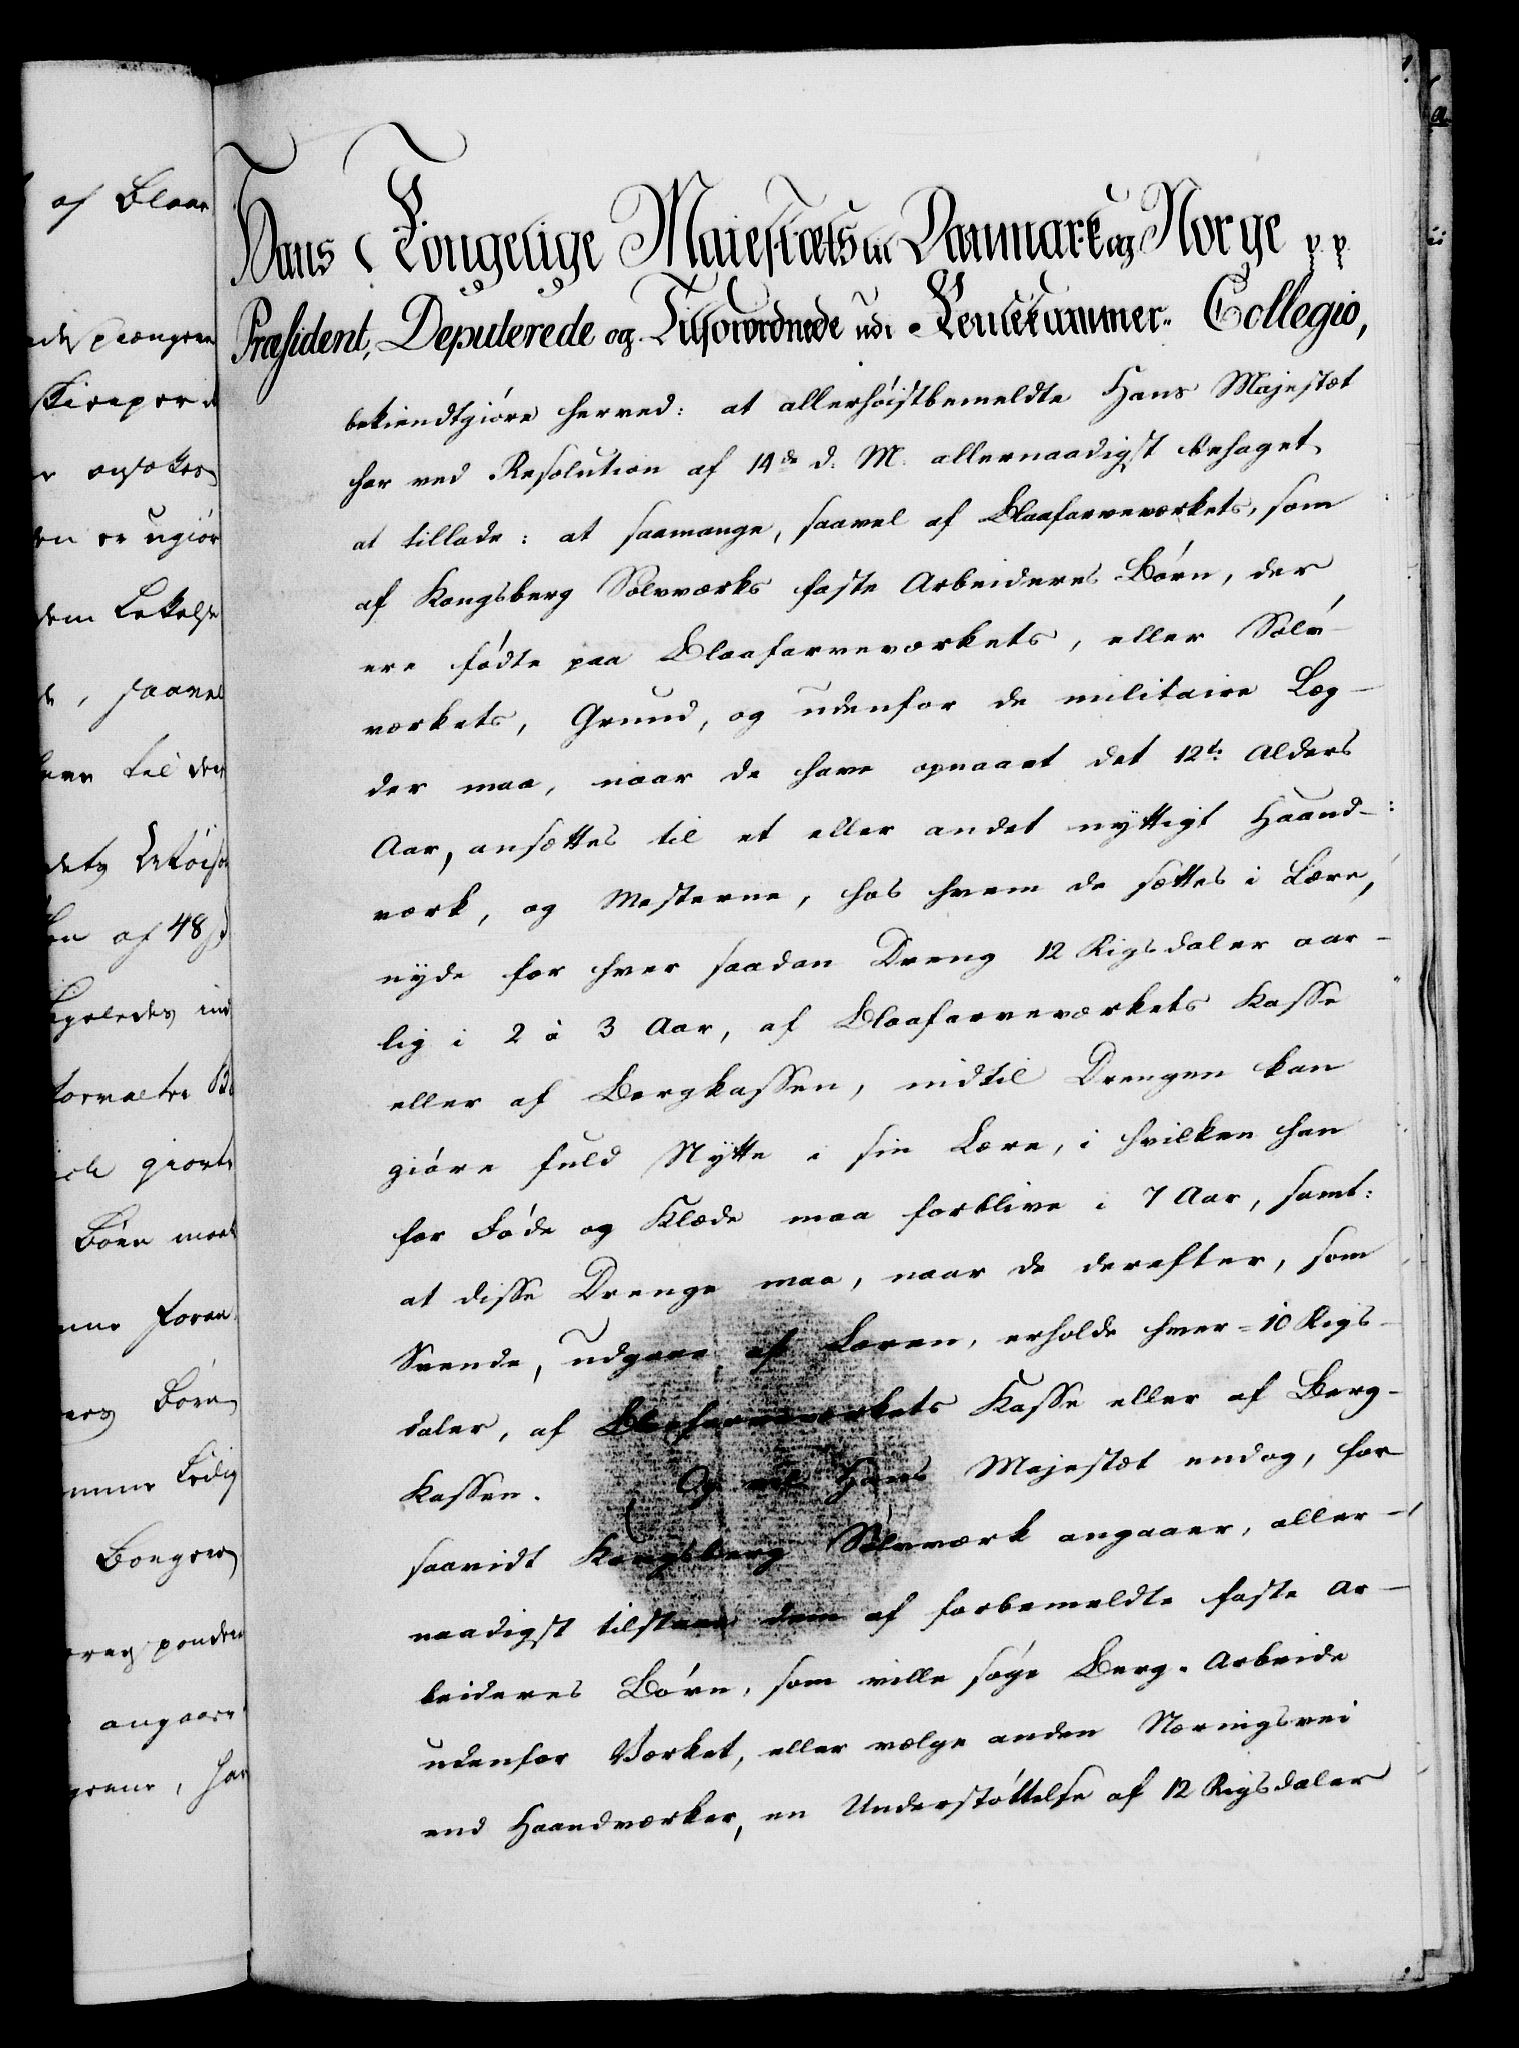 Hans Kongelige Majestæts til Danmark og Norge p. p.
Præsident, Deputerede og Tilforordnede udi Rentekammer-Collegio,
bekiendtgiöre herved: at allerhöistbemeldte Hans Majestæt
har ved Resolution af 14de d. M. allernaadigst behaget
at tillade: at saamange, saavel af Blaafarveværkets, som
af Kongsberg Sölvværks faste Arbeideres Börn, der
ere födte paa Blaafarveværkets, eller Sölv-
værkets, Grund, og udenfor de militaire Læg-
der maa, naar de have opnaaet det 12te Alders
Aar, ansættes til et eller andet nyttigt Haand-
værk, og Mesterne, hos hvem de sættes i Lære,
nyde for hver saadan Dreng 12 Rigsdaler aar-
lig i 2 à 3 Aar, af Blaafarveværkets Kasse
eller af Bergkassen, indtil Drengen kan
giöre fuld Nytte i sin Lære, i hvilken han
for Föde og Klæde maa forblive i 7 Aar, samt:
at disse Drenge maa, naar de derefter, som
Svende, udgaae af Læren, erholde hver 10 Rigs-
daler, af Blaafarveværkets Kasse eller af Berg-
Kassen. Og vil Hans Majestæt endog, for
saavidt Kongsberg Sölvværk angaaer, aller-
naadigst tilstaae dem af forbemeldte faste Ar-
beideres Börn, som ville söge Berg-Arbeide
udenfor Værket, eller vælge anden Næringsvei
end Haandværker, en Understöttelse af 12 Rigsdaler
af Blaae
saavel
til den
af 48 s
Börn
Börn